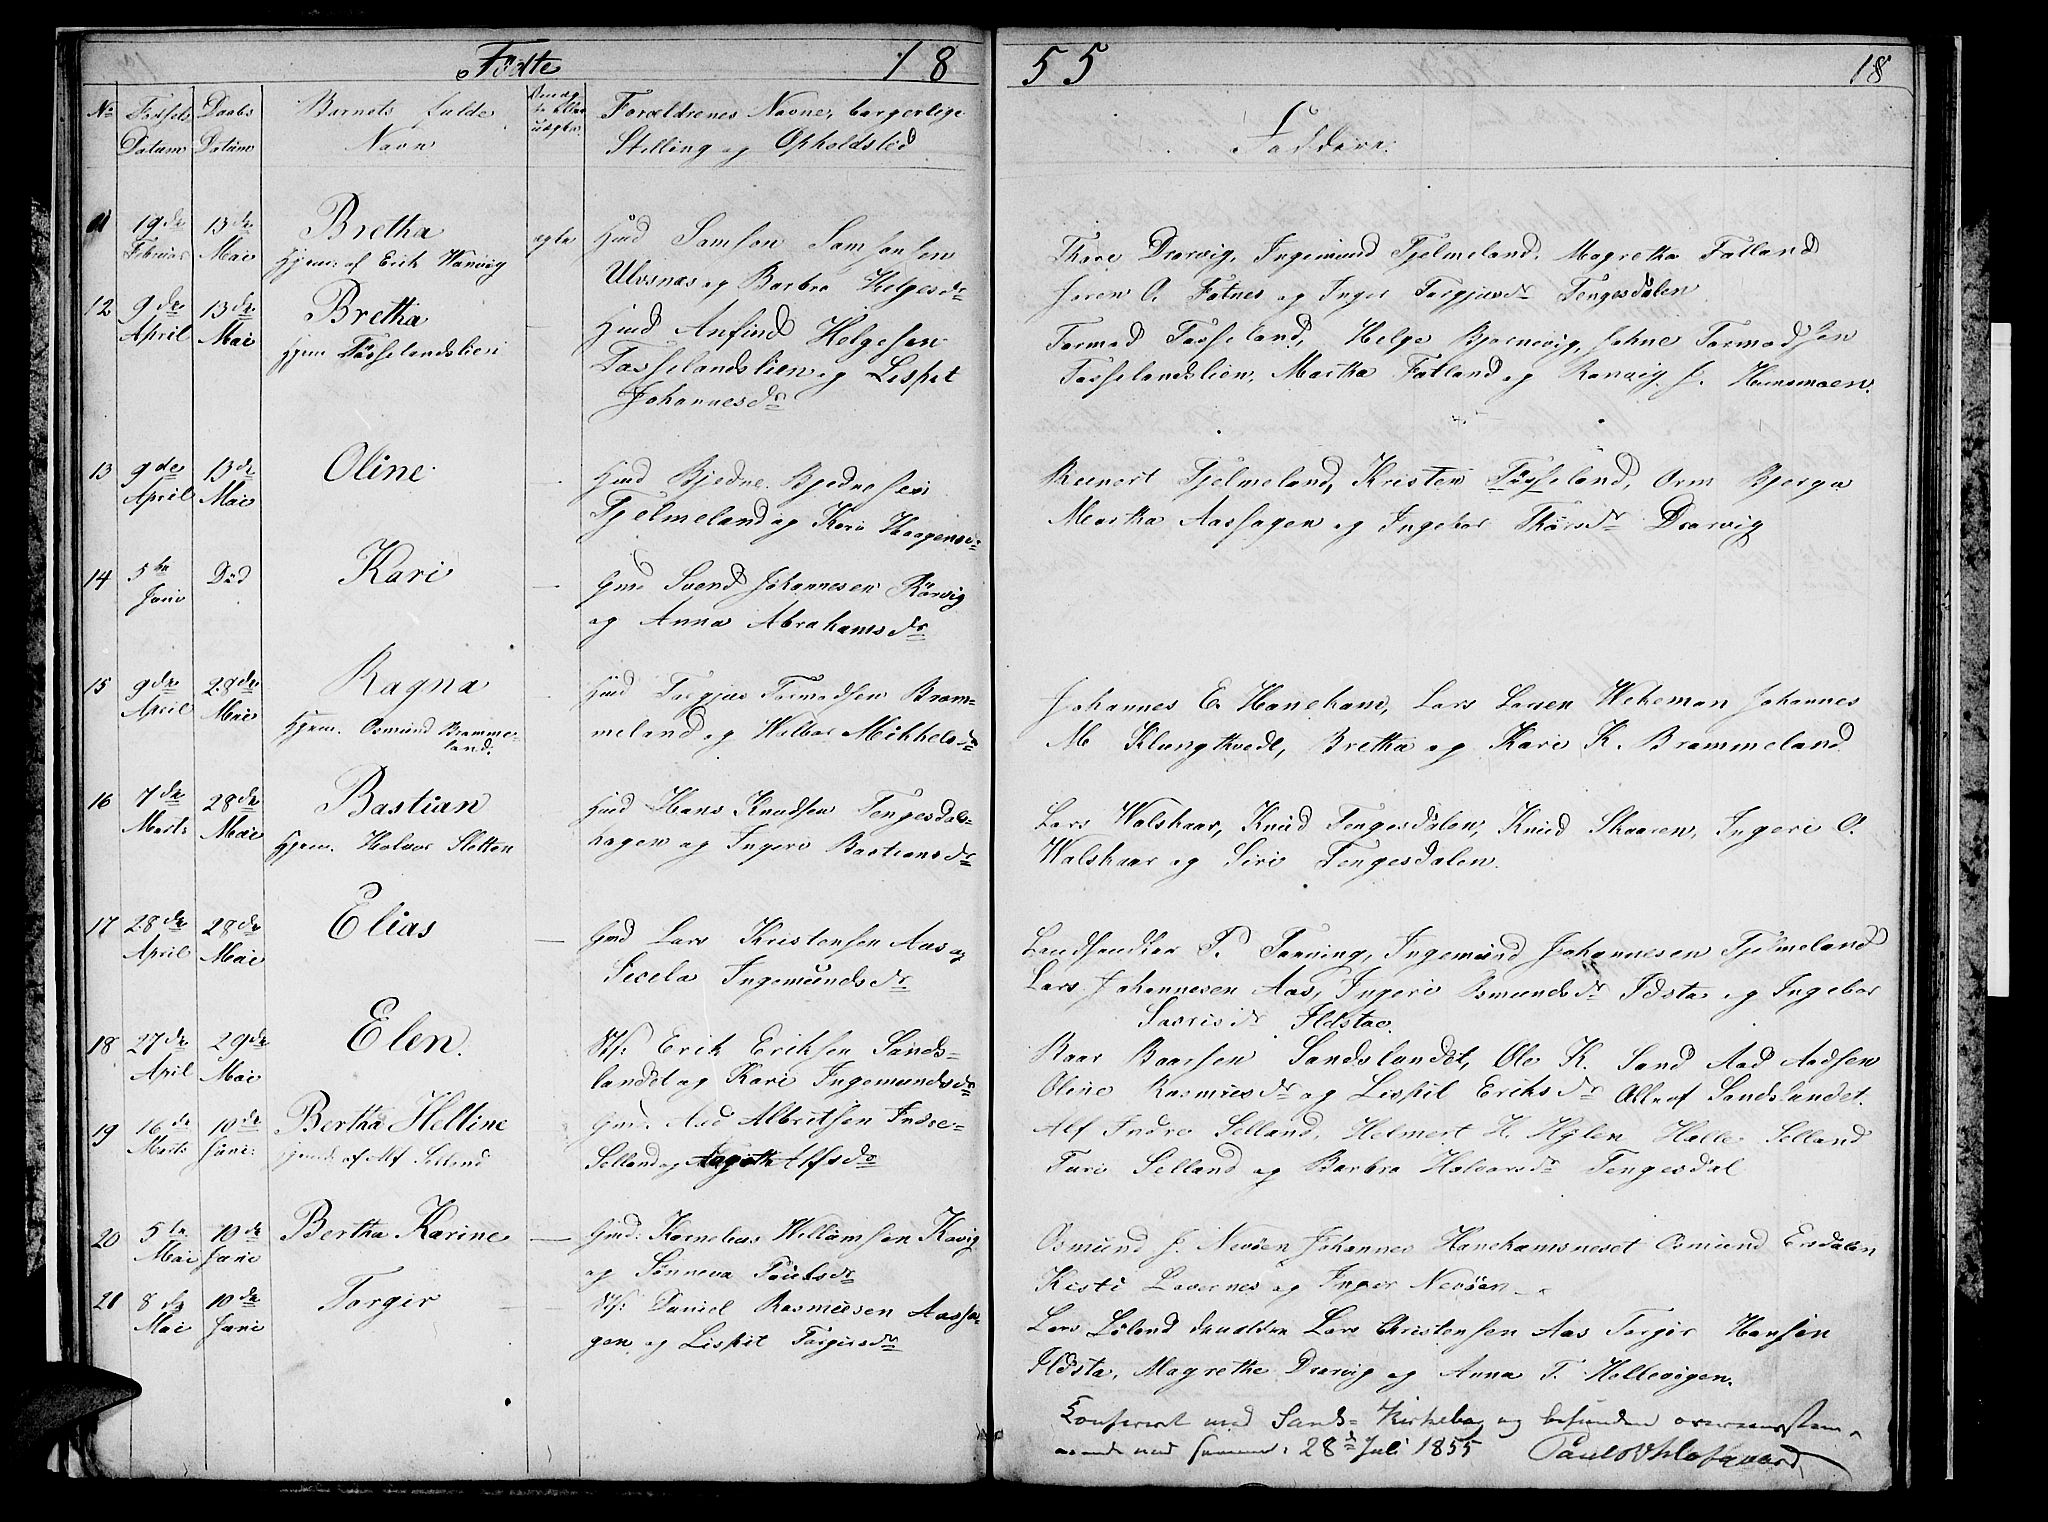 Fødte 18 55 18
No Fødsels Datum Daabs Datum Barnets fulde Navn Forældrenes Navne, borgerlige Stilling og Opholdsted
Faddere.
11 19de Februar 13de Mai Bretha ægte Hmd Samson Samsonsen
Hjem: af Erik Wanvig Ulvsnæs og Barbro Helgesdr
Thore Drarvig, Ingemund Tjelmeland, Magretha Fatland
Soren O. Fatnes og Inger Torgjusdr Tengesdalen
12 9de April 13de Mai Bretha Hmd Anfind Helgesen
Hjem Tosselandslien Tosselandslien og Lispet
Johannesdr
Tormod Tosseland, Helge Bjornevig, Johne Tormodsen
Tosselandslien, Martha Fatland og Ranvig J.
13 9de April 13de Mai Oline Hmd Bjedne Bjednesen
Tjelmeland og Kari Haagensdr
Reinert Tjelmeland, Kristen Tosseland, Orm Bjerga
Martha Aashagen og Ingebor Thorsdr Drarvig
14 5te Juni Död Kari Gmd Svend Johannesen Rörvig
og Anna Abrahamsdr
15 9de April 28de Mai Ragna Hmd Torgjus Tormodsen Bram-
Hjem. Osmund Bramme- meland og Wilbor Mikkelsdr
land.
Johannes E. Hanekam, Lars Wekeman Johannes
M Klungtvedt, Bretha og Kari K. Brammeland
16 7de Marts 28de Mai Bastian Hmd Hans Knudsen Tengesdals-
Hjem. Halvor Sletten hagen og Ingeri Bastiansdr
Lars Walskaar, Knud Tengesdalen, Knud Skaaren, Ingeri O.
Walskaar og Siri Tengesdalen.
17 28de April 28de Mai Elias Gmd Lars Kristensen Aas og
Sicela Ingemundsdr
Landhandler P. Tarning, Ingemund Johannesen Tjelmeland
Lars Johannesen Aas, Ingeri Osmundsdr Idsta og Ingebor
Ildstae.
18 27de April 29de Mai Elen. Erik Eriksen Sands-
landet og Kari Ingemundsdr
Baar Baarsen Sandslandet, Ole K. Sand Aad Aadsen
Oline Rasmusdr og Lispil Eriksdr Alle af Sandslandet.
19 16de Marts 10de Juni Bertha Helline Gmd. Aad Albretsen Indre-
hjemd. af Alf Selland Selland og Aagoth Alfsdr
Alf Indre Selland, Helmert H. Hylen Halle Selland
Turi Selland og Barbro Halvorsdr Tengesdal
20 5te Mai 10de Juni Bertha Karine Gmd: Kornelius Willumsen Kavig
og Sönneva
Osmund J. Nevöen Johannes Hanekamsneset Osmund Erdalen
Kisti Lavernes og Inger Nevöen
21 8de Mai 10de Juni Torgir Daniel Rasmusen Aasha-
gen og Lispit Torgirsdr
Lars Löland Lars Christensen Aas Torgir Hansen
Ildsta, Magrethe Drarvig og Anna T. Hellevigen.
Confereret med Sands Kirkebog og befunden overeensstem-
mende med samme. 28d Juli 1855